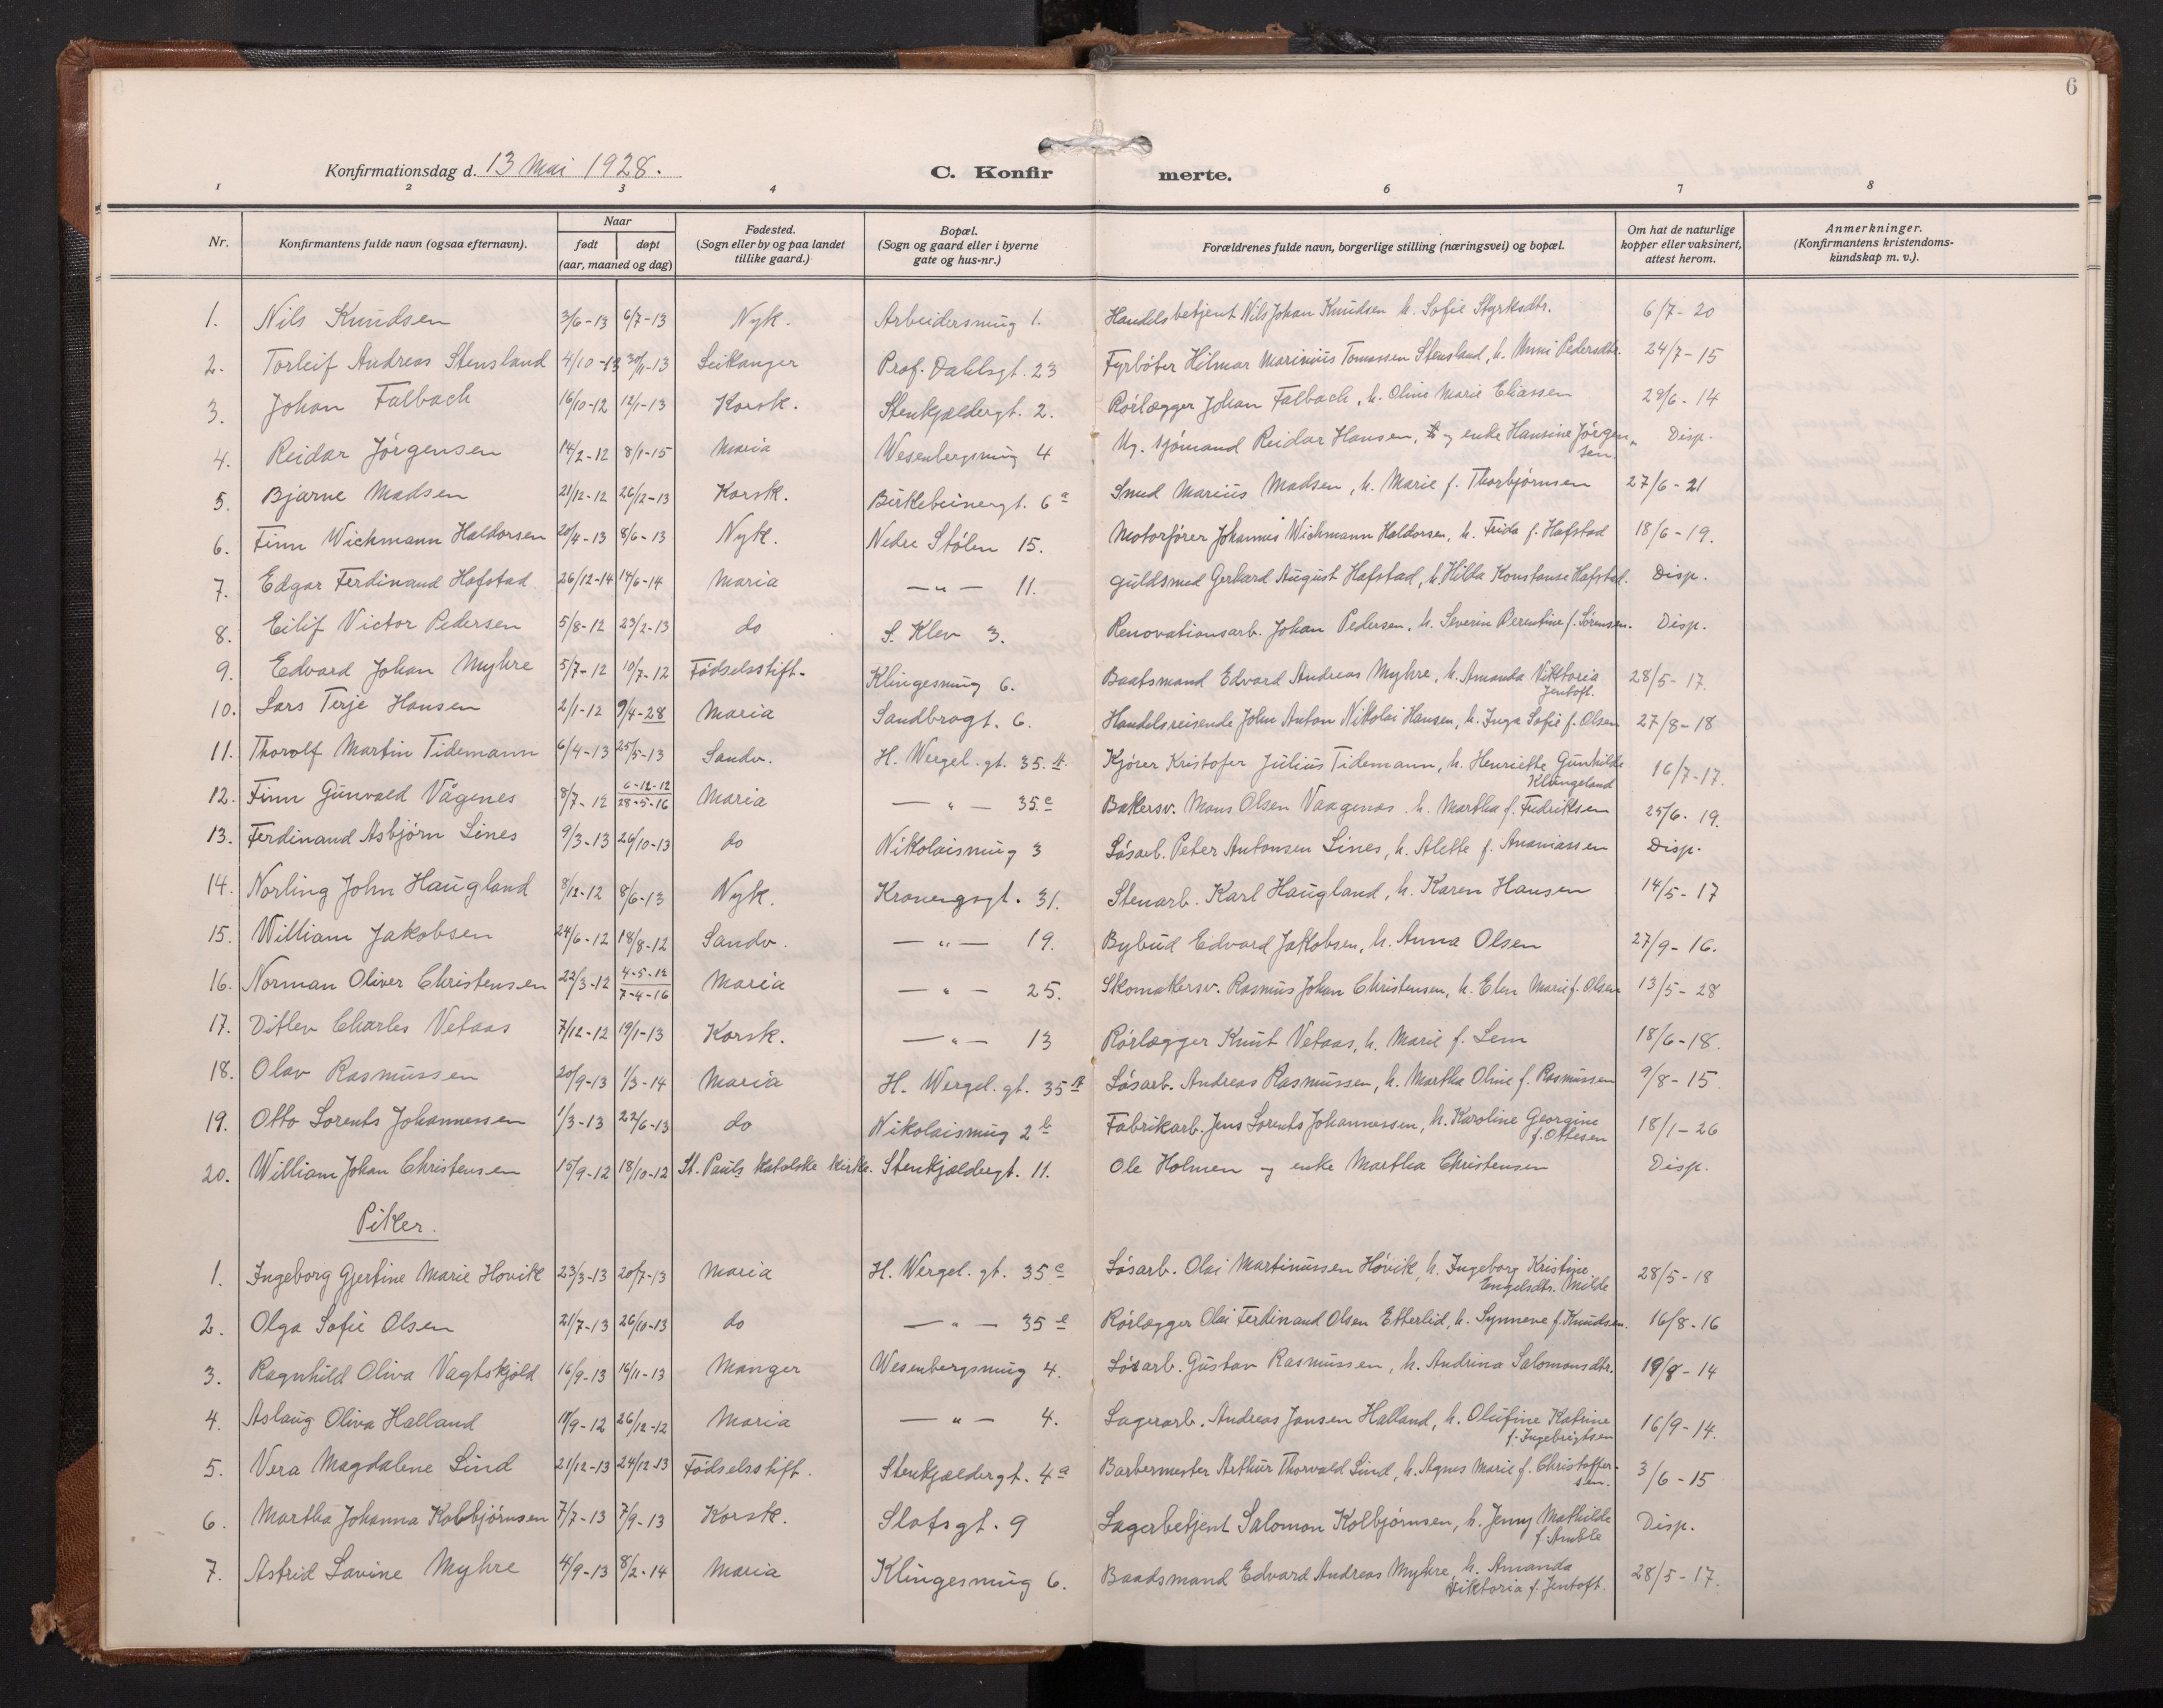 6
Konfirmationsdag d. 13 Mai 1928.
C. Konfir merte.
1 2 3 4 6 7 8
Nr. Konfirmantens fulde navn (ogsaa efternavn). Naar født døpt (aar, maaned og dag) Fødested. (Sogn eller by og paa landet tillike gaard.) Bopæl. (Sogn og gaard eller i byerne gate og hus-nr.) Forældrenes fulde navn, borgerlige stilling (næringsvei) og bopæl. Om hat de naturlige kopper eller vaksinert, attest herom. Anmerkninger. (Konfirmantens kristendoms-kundskap m. v.).
1. Nils Knudsen 3/6-13 6/7-13 Nyk. Arbeidersmug 1. Handelsbetjent Nils Johan Knudsen h. Sofie Styrksdtr. 6/7-20
2. Torleif Andreas Stensland 4/10-13 30/11-13 Leikanger Prof. Dahlsgt. 23 Fyrbøter Hilmar Marinius Tomassen Stensland, h. Unni Pedersdtr. 24/7-15
3. Johan Falbach 16/10-12 12/1-13 Korsk. Stenkjældergt. 2. Rørlægger Johan Falbach, h. Oline Marie Eliassen 28/6-14
4. Reidar Jørgensen 14/2-12 8/1-15 Maria Wesenbergsmug 4 Ug. sjømand Reidar Hansen, og enke Hansine Jørgensen Disp.
5. Bjarne Madsen 21/12-12 26/12-13 Korsk. Birkebeinergt. 6a Smed Marius Madsen, h. Marie f. Thorbjørnsen 27/6-21
6. Finn Wichmann Haldorsen 20/4-13 8/6-13 Nyk. Nedre Stølen 15. Motorfører Johannes Wichmann Haldorsen, h. Frida f. Hafstad 18/6-19.
7. Edgar Ferdinand Hafstad 26/12-14 14/6-14 Maria — " — 11. Guldsmed Gerhard August Hafstad, h. Hilda Konstanse Hafstad. Disp.
8. Eilif Victor Pedersen 5/8-12 23/2-13 do S. Klev 3. Renovationsarb. Johan Pedersen, h. Severin Berentine f. Sørensen. Disp.
9. Edvard Johan Myhre 5/7-12 10/7-12 Fødselsstift. Klingesmug 6. Baatsmand Edvard Andreas Myhre, h. Amanda Viktoria Jentoft. 28/5-17.
10. Lars Terje Hansen 2/1-12 9/4-28 Maria Sandbrogt. 6. Handelsreisende John Anton Nikolai Hansen, h. Inga Sofie f. Olsen 27/8-18
11. Thorolf Martin Tidemann 6/4-13 25/5-13 Sandv. H. Wergel. gt. 35. Kjører Kristofer Julius Tidemann, h. Henriette Gunhilde Klungeland 16/7-17.
12. Finn Gunvald Vågenes 8/7-12 6-12-12 28-5-16 Maria — " — 35c Bakersv. Mons Olsen Vaagenes h. Martha f. Fredriksen 25/6-19.
13. Ferdinand Asbjørn Lines 9/3-13 26/10-13 do Nikolaismug 3 Løsarb. Peter Antonsen Lines, h. Alette f. Ananiassen Disp.
14. Norling John Haugland 8/12-12 8/6-13 Nyk. Kronengsgt. 31. Stenarb. Karl Haugland, h. Karen Hansen 14/5-17
15. William Jakobsen 24/6-12 18/8-12 Sandv. — " — 19. Bybud Edvard Jakobsen, h. Anna Olsen 27/9-16.
16. Norman Oliver Christensen 22/3-12 4-5-12 7-4-16 Maria — " — 25. Skomakersv. Rasmus Johan Christensen, h. Elen Marie f. Olsen 13/5-28
17. Ditlev Charles Vetaas 7/12-12 19/1-13 Korsk. — " — 13 Rørlægger Knut Vetaas, h. Marie f. Lem 18/6-18.
18. Olav Rasmussen 20/9-13 1/3-14 Maria H. Wergel. gt. 35 Løsarb. Andreas Rasmussen, h. Martha Oline f. Rasmussen 9/8-15
19. Otto Lorents Johannessen 1/3-13 22/6-13 do Nikolaismug 2b Fabrikarb. Jens Lorents Johannessen, h. Karoline Georgine f. Ottesen 18/1-26
20. William Johan Christensen 15/9-12 18/10-12 St. Pauls Katolske Kirke. Stenkjældergt. 11. Ole Holmen og enke Martha Christensen Disp.
Piker.
1. Ingeborg Gjertine Marie Hovik 23/3-13 20/7-13 Maria H. Wergel. gt. 35c Løsarb. Olai Martinussen Høvik, h. Ingeborg Kristine Engelsdtr. Milde 28/5-18
2. Olga Sofie Olsen 21/7-13 26/10-13 do — " — 35e Rørlægger Olai Ferdinand Olsen Etterlid, h. Synneve f. Knudsen. 16/8-16
3. Ragnhild Oliva Vagtskjold 16/9-13 16/11-13 Manger Wesenbergsmug 4. Løsarb. Gustav Rasmussen, h. Andrina Salomonsdtr. 19/8-14
4. Aslaug Oliva Halland 11/9-12 26/12-12 Maria — " — 4. Lagerarb. Andreas Jansen Halland, h. Olufine Katrine f. Ingebrigtsen 16/9-14.
5. Vera Magdalene Lind 21/12-13 24/12-13 Fødselsstift. Stenkjældergt. 4a Barbermester Arthur Thorvald Lind, h. Agnes Marie f. Christoffersen. 3/6-15
6. Martha Johanna Kolbjørnsen 7/7-13 7/9-13 Korsk. Slotsgt. 9 Lagerbetjent Salomon Kolbjørnsen, h. Jenny Mathilde f. Amble Disp.
7. Astrid Lovine Myhre 4/9-13 8/2-14 Maria Klingesmug 6. Baadsmand Edvard Andreas Myhre, h. Amanda Viktoria f. Jentoft. 28/5-17.